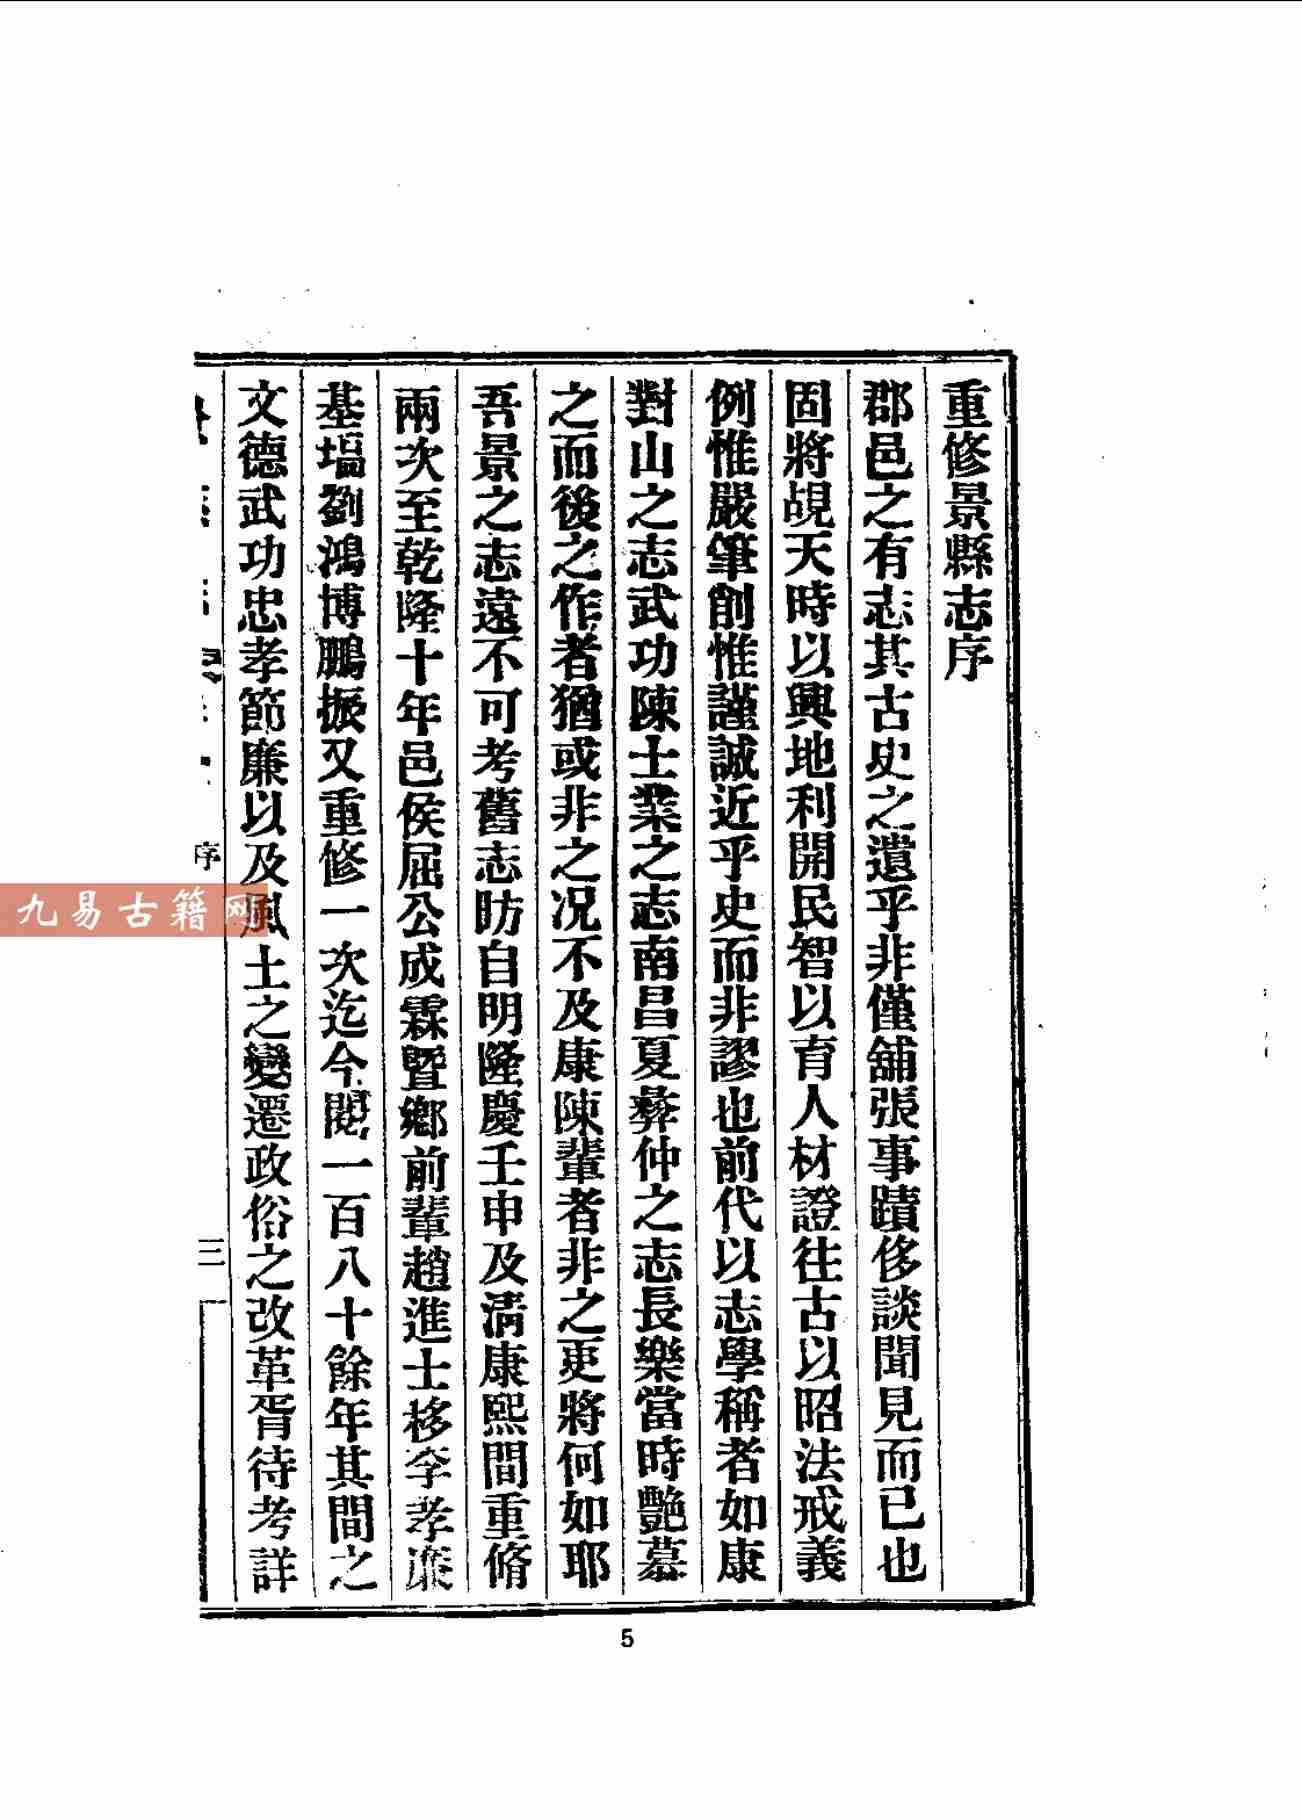 重修景縣志序
郡邑之有志其古史之遺乎非僅舖張事蹟侈談聞見而已也
固將覘天時以興地利開民智以育人材證往古以昭法戒義
例惟嚴筆削惟謹誠近乎史而非謬也前代以志學稱者如康
對山之志武功陳士業之志南昌夏彝仲之志長樂當時艷慕
之而後之作者猶或非之况不及康陳輩者非之更將何如耶
吾景之志遠不可考舊志昉自明隆慶壬申及清康熙間重脩
兩次至乾隆十年邑侯屈公成霖暨鄉前輩趙進士移李孝廉
基塙劉鴻博鵬振又重修一次迄今閱一百八十餘年其間之
文德武功忠孝節廉以及風土之變遷政俗之改革胥待考詳
序
三
5
九易古籍网